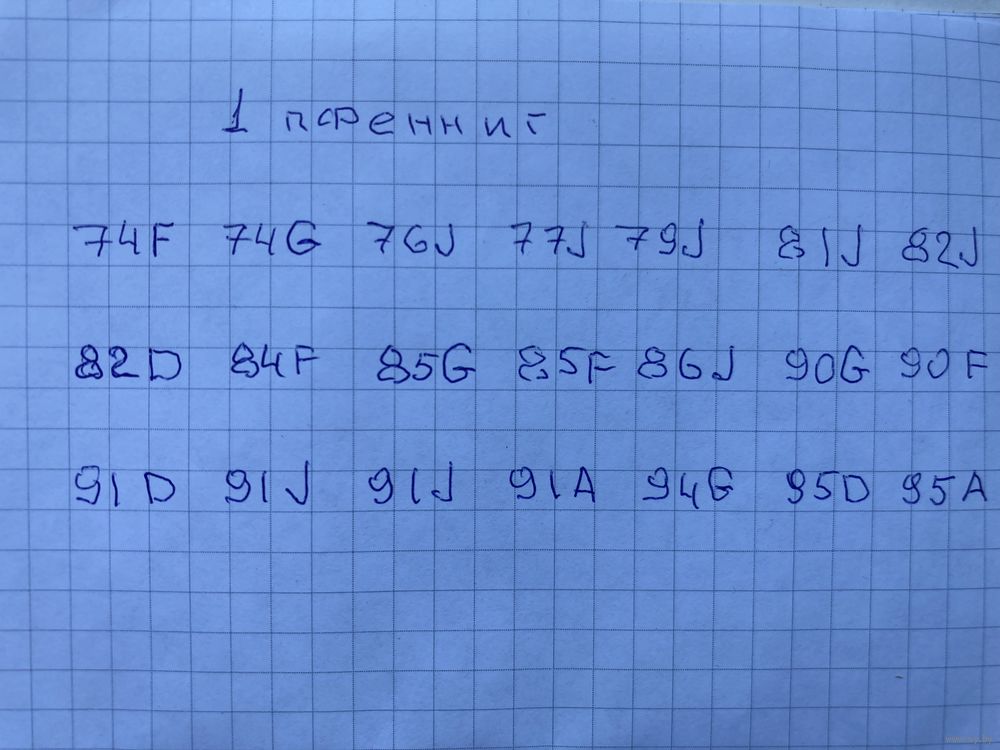 1 пфенниг
74F 74G 76J 77J 79J 81J 82J
82D 84F 85G 85F 86J 90G 90F
91D 91J 91J 91A 94G 95D 95A